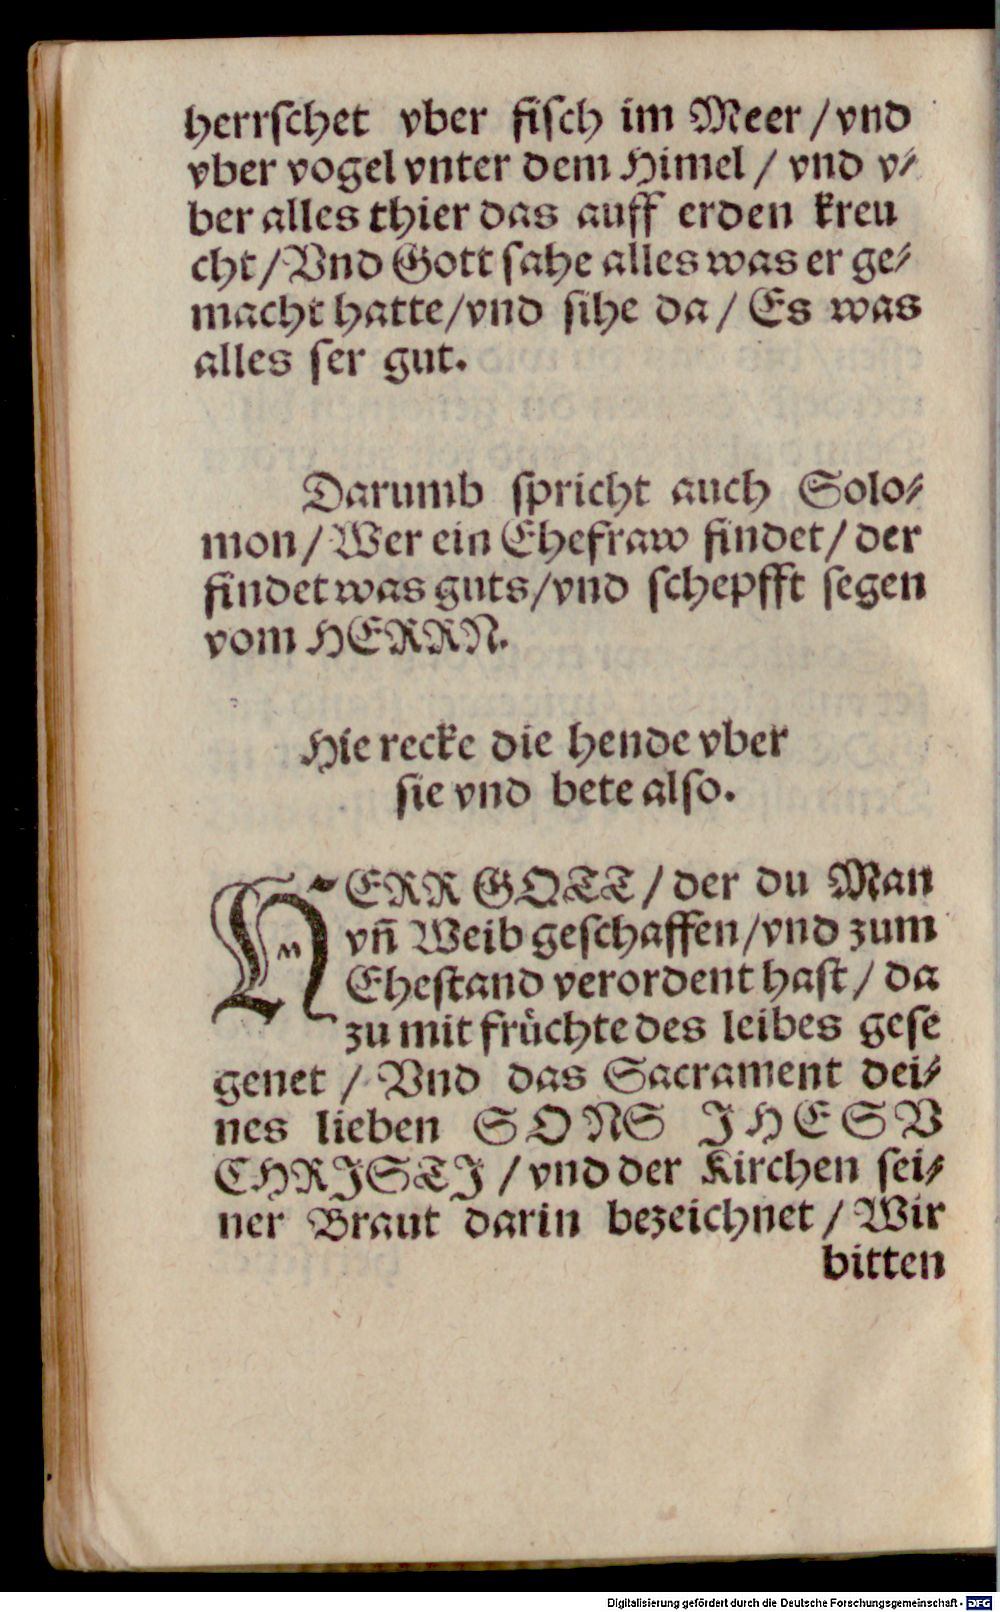 herrſchet vber fiſch im Meer / vnd
vber vogel vnter dem Himel / vnd v⸗
ber alles thier das auff erden kreu
cht / Vnd Gott ſahe alles was er ge⸗
macht hatte / vnd ſihe da / Es was
alles ſer gut.
Darumb ſpricht auch Solo⸗
mon / Wer ein Ehefraw findet / der
findet was guts / vnd ſchepfft ſegen
vom HERRN.
Hie recke die hende vber
ſie vnd bete alſo.
HERR GOTT / der du Man
vn̄ Weib geſchaffen / vnd zum
Eheſtand verordent haſt / da
zu mit früchte des leibes geſe
genet / Vnd das Sacrament dei⸗
nes lieben SONS JHESV
CHRJSTJ / vnd der Kirchen ſei⸗
ner Braut darin bezeichnet / Wir
bitten
Digitalisierung gefördert durch die Deutsche Forschungsgemeinschaft - DFG